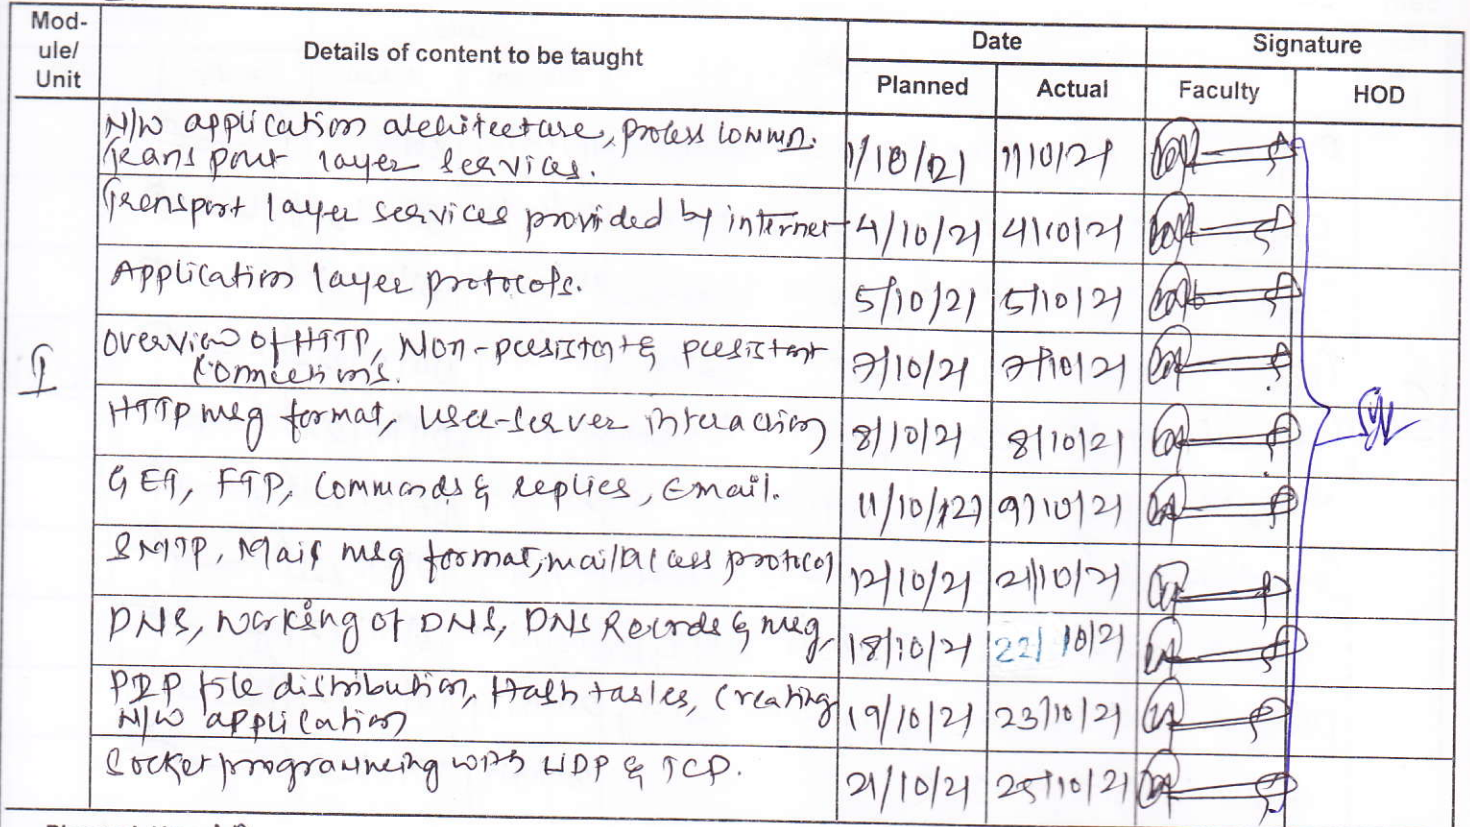 Mod-
ule/
Unit
Details of content to be taught
Date
Signature
Planned
Actual
Faculty
HOD
I
N/W application architecture, process commn.
Transport layer services.
1/10/21 1/10/21
Transport layer services provided by internet 4/10/21 4/10/21
Application layer protocols. 5/10/21 5/10/21
Overview of HTTP, Non-persistent & persistent
Connections.
7/10/21 7/10/21
HTTP msg format, user-server interaction 8/10/21 8/10/21
GET, FTP, Commands & replies, Email. 11/10/21 9/10/21
SMTP, Mail msg format, mail access protocol 12/10/21 21/10/21
DNS, working of DNS, DNS Records & msg, 18/10/21 22/10/21
P2P file distribution, Hash tables, Creating
N/W application
19/10/21 23/10/21
Socket programming with UDP & TCP. 21/10/21 25/10/21